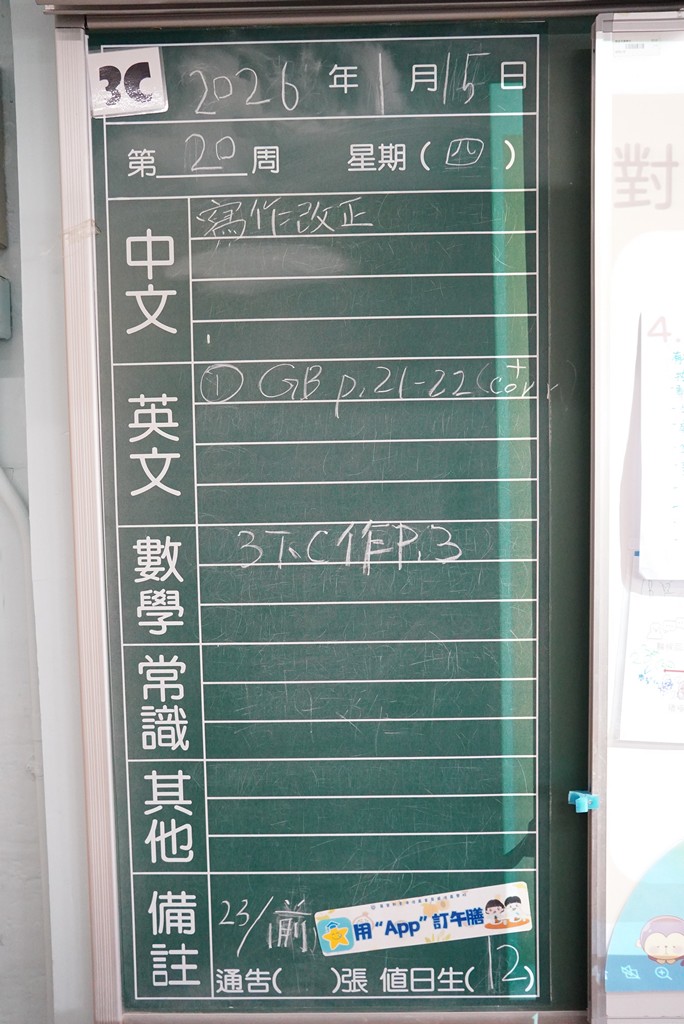 3C
2026年1月15日
第20周 星期(四)
中文
寫作改正
英文
① GB p.21-22 (+corr)
數學
3下C作P.3
常識
其他
備註
23/
前
用“App”訂午膳
通告( )張 值日生(12)
對
4.